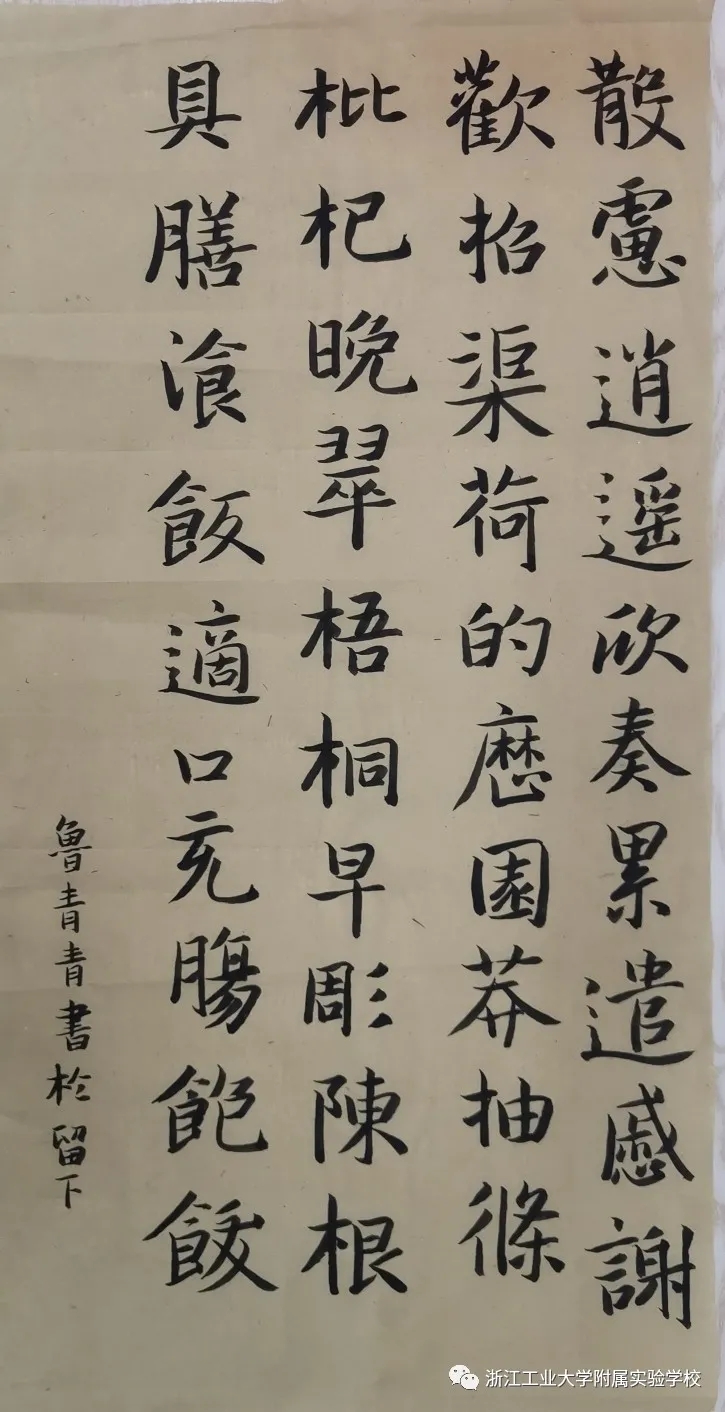 散慮逍遥欣奏累遣慼謝
歡招渠荷的歷園莽抽條
枇杞晚翠梧桐早彫陳根
具膳飡飯適口充腸飽飫
魯青青書於留下
浙江工业大学附属实验学校